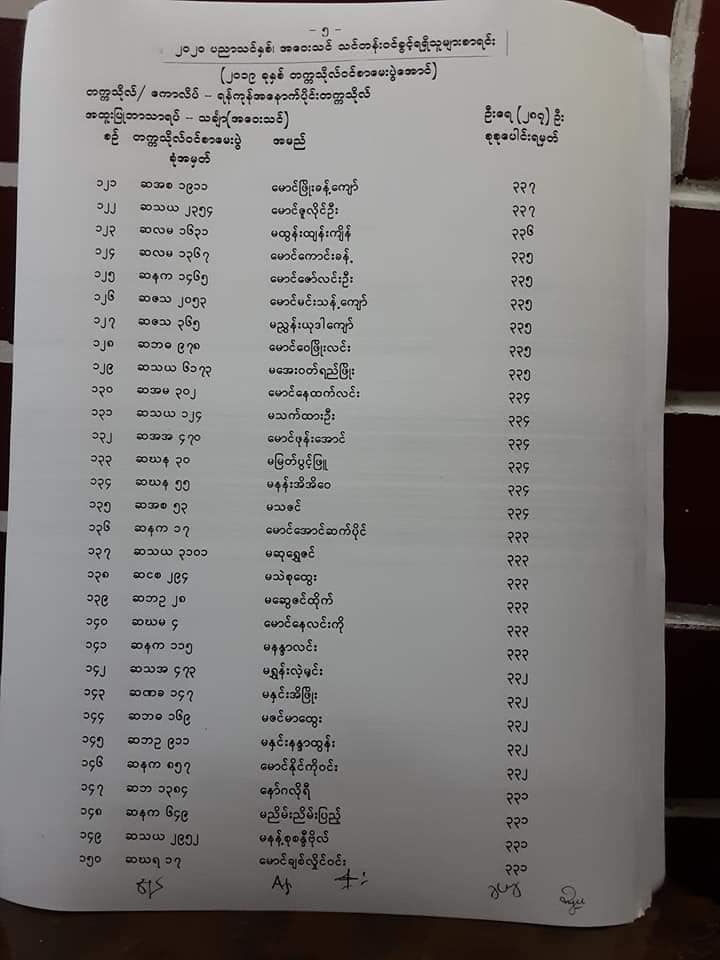 - ၅ -
၂၀၂၀ ပညာသင်နှစ်၊ အဝေးသင် သင်တန်းဝင်ခွင့်ရရှိသူများစာရင်း
(၂၀၁၉ ခုနှစ် တက္ကသိုလ်ဝင်စာမေးပွဲအောင်)
တက္ကသိုလ်/ ကောလိပ် - ရန်ကုန်အနောက်ပိုင်းတက္ကသိုလ်
အထူးပြုဘာသာရပ် - သင်္ချာ(အဝေးသင်) ဦးရေ (၂၈၇) ဦး
စဉ် တက္ကသိုလ်ဝင်စာမေးပွဲ အမည် စုစုပေါင်းရမှတ်
ခုံအမှတ်
၁၂၁ ဆအစ ၁၉၁၁ မောင်ဖြိုးခန့်ကျော် ၃၃၇
၁၂၂ ဆသယ ၂၃၅၄ မောင်ဇူလိုင်ဦး ၃၃၇
၁၂၃ ဆလမ ၁၆၃၁ မထွန်းထျန်းကျိန် ၃၃၆
၁၂၄ ဆလမ ၁၃၆၇ မောင်ကောင်းခန့် ၃၃၅
၁၂၅ ဆနက ၁၄၆၅ မောင်ဇော်လင်းဦး ၃၃၅
၁၂၆ ဆဇသ ၂၀၅၃ မောင်မင်းသန့်ကျော် ၃၃၅
၁၂၇ ဆဇသ ၃၆၅ မညွှန်းယုဒါကျော် ၃၃၅
၁၂၈ ဆဘဓ ၉၇၈ မောင်ဝေဖြိုးလင်း ၃၃၅
၁၂၉ ဆသယ ၆၁၇၃ မအေးဝတ်ရည်ဖြိုး ၃၃၅
၁၃၀ ဆအမ ၃၀၂ မောင်နေထက်လင်း ၃၃၄
၁၃၁ ဆသယ ၁၂၄ မသက်ထားဦး ၃၃၄
၁၃၂ ဆအအ ၄၇၀ မောင်ဖုန်းအောင် ၃၃၄
၁၃၃ ဆဃန ၃၀ မမြတ်ပွင့်ဖြူ ၃၃၄
၁၃၄ ဆဃန ၅၅ မနန်းအိအိဝေ ၃၃၄
၁၃၅ ဆအစ ၅၃ မသဇင် ၃၃၄
၁၃၆ ဆနက ၁၇ မောင်အောင်ဆက်ပိုင် ၃၃၃
၁၃၇ ဆသယ ၃၁၀၁ မဆုရွှေဇင် ၃၃၃
၁၃၈ ဆငစ ၂၉၄ မသဲစုထွေး ၃၃၃
၁၃၉ ဆဘဥ ၂၈ မဆွေဇင်ထိုက် ၃၃၃
၁၄၀ ဆဃမ ၄ မောင်နေလင်းကို ၃၃၃
၁၄၁ ဆနက ၁၁၅ မနန္ဒာလင်း ၃၃၃
၁၄၂ ဆသအ ၄၇၃ မရွှန်းလဲ့မွှင်း ၃၃၂
၁၄၃ ဆဏခ ၁၄၇ မနှင်းအိဖြိုး ၃၃၂
၁၄၄ ဆဘဓ ၁၆၉ မဇင်မာထွေး ၃၃၂
၁၄၅ ဆဘဥ ၉၁၁ မနှင်းနန္ဒာထွန်း ၃၃၂
၁၄၆ ဆနက ၈၅၇ မောင်နိုင်ကိုဝင်း ၃၃၂
၁၄၇ ဆဘ ၁၃၈၄ နော်ဂလိုရီ ၃၃၁
၁၄၈ ဆနက ၆၄၉ မညိမ်းညိမ်းပြည့် ၃၃၁
၁၄၉ ဆသယ ၂၉၅၂ မနန့်စုစန္ဒီဗိုလ် ၃၃၁
၁၅၀ ဆဃရ ၁၇ မောင်ချစ်လှိုင်ဝင်း ၃၃၁